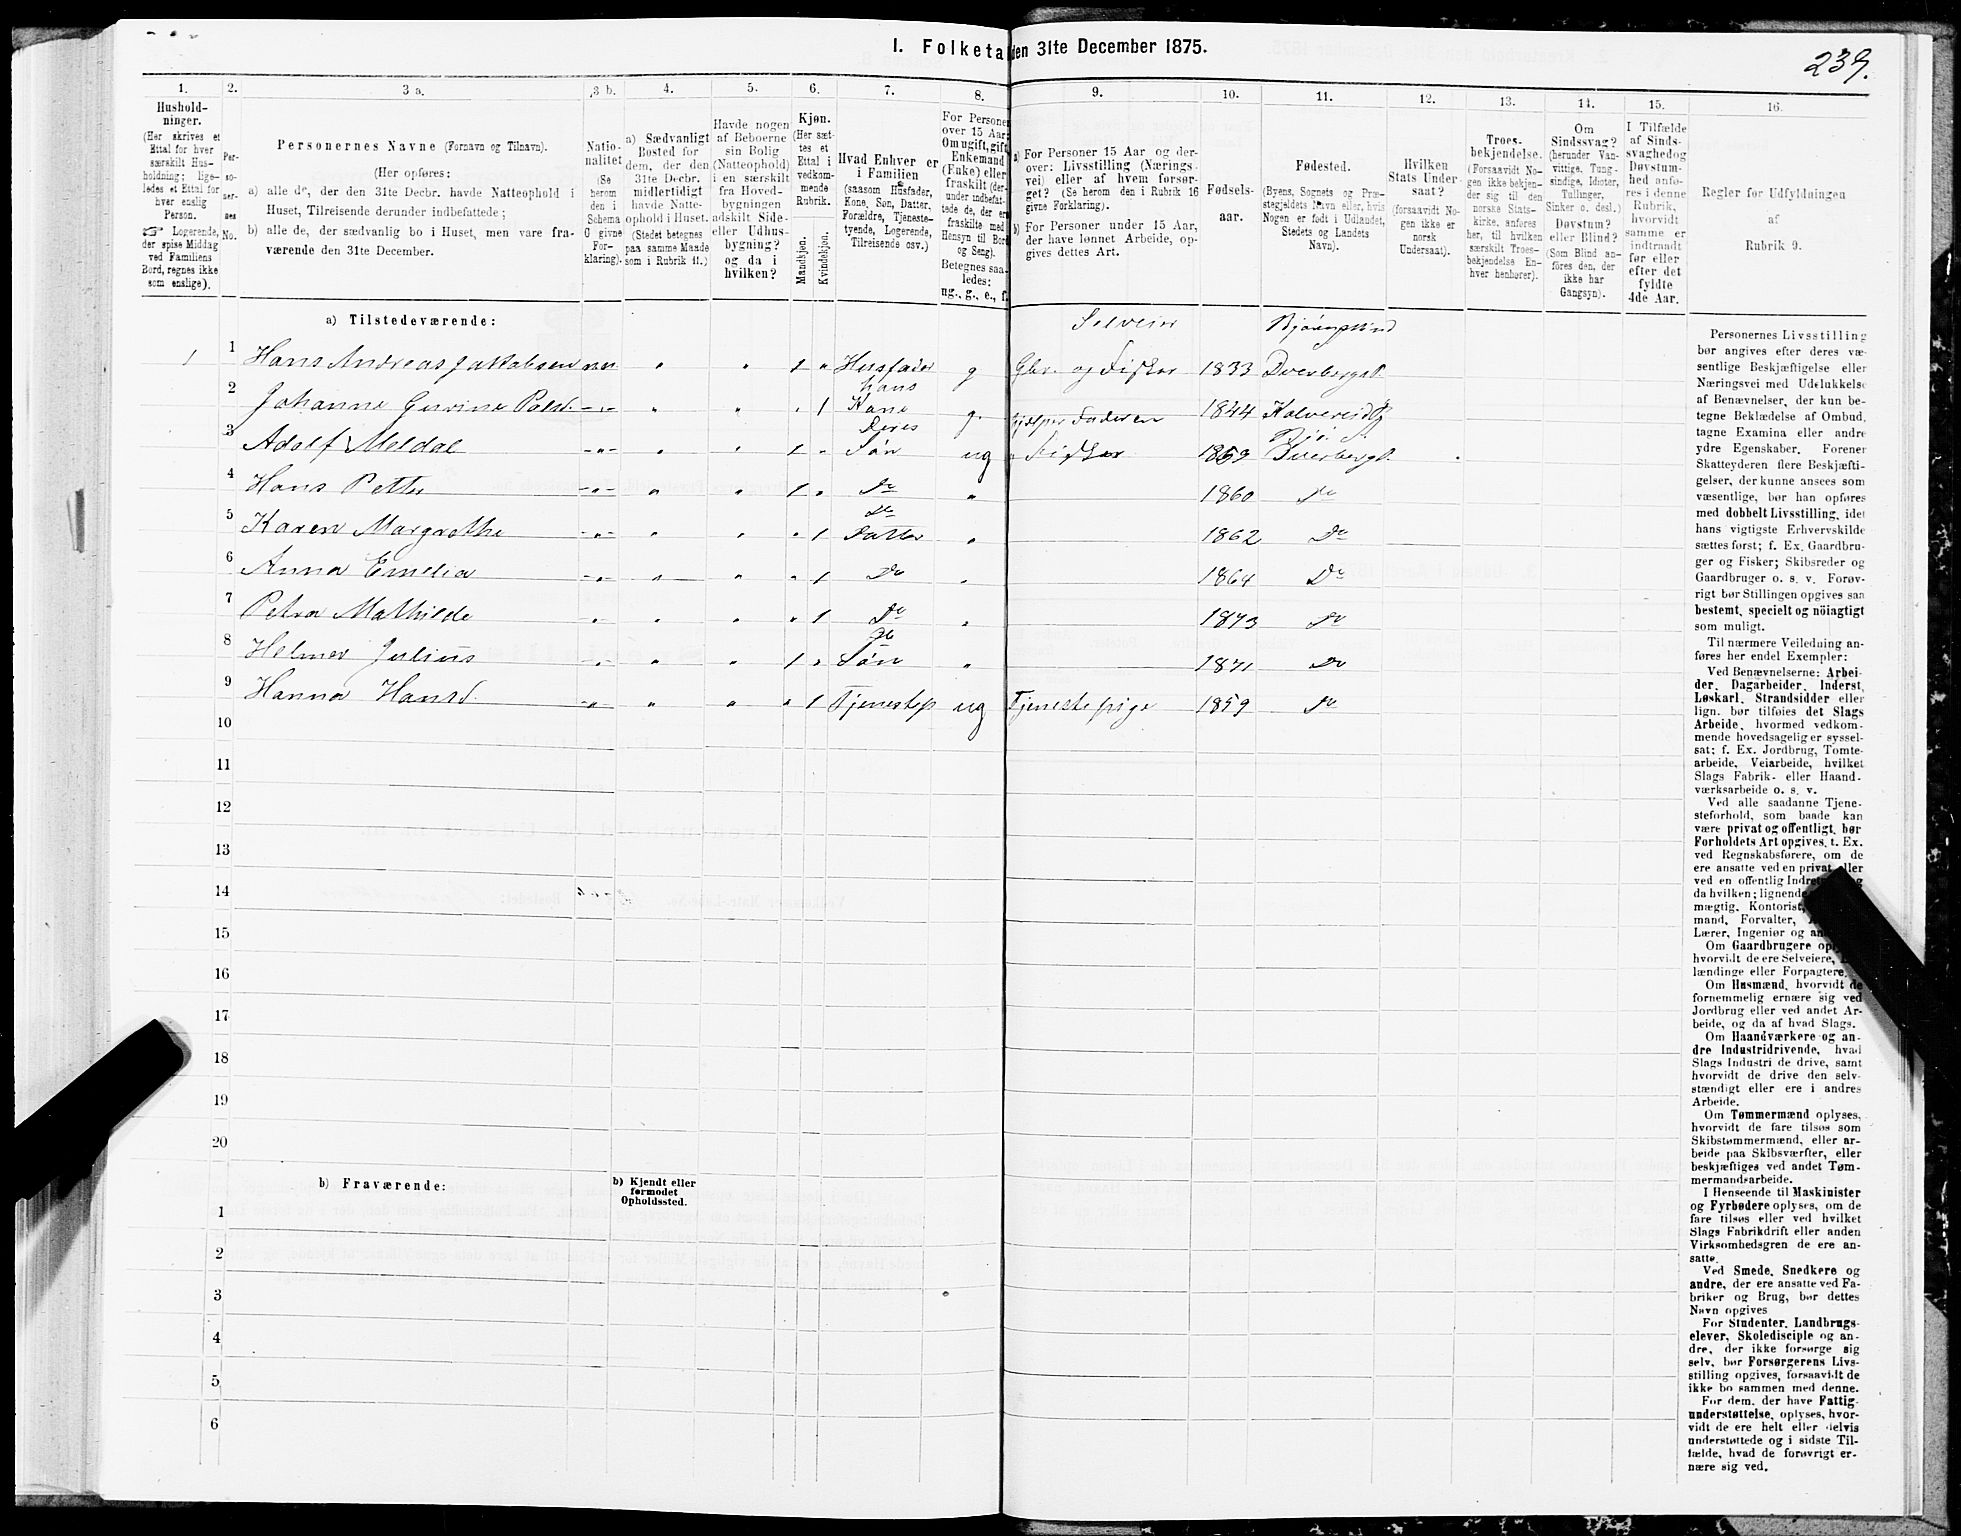 I. Folketal den 31te December 1875.
239.
1.
Husholdninger.
(Her skrives et Ettal for hver særskilt Husholdning; ligeledes et Ettal for hver enslig Person.
Logerende, der spise Middag ved Familiens Bord, regnes ikke som enslige).
2.
Personernes No.
3 a.
Personernes Navne (Fornavn og Tilnavn).
(Her opføres:
a) alle de, der den 31te Decbr. havde Natteophold i Huset, Tilreisende derunder indbefattede;
b) alle de, der sædvanlig bo i Huset, men vare fraværende den 31te December.
3 b.
Nationalitet
(Se herom den i Schema C givne Forklaring).
4.
a) Sædvanligt Bosted for dem, der den 31te Decbr. midlertidigt havde Natteophold i Huset.
(Stedet betegnes paa samme Maade som i Rubrik 11.)
5.
Havde nogen af Beboerne sin Bolig (Natteophold) i en særskilt fra Hovedbygningen adskilt Side- eller Udhusbygning? og da i hvilken?
6.
Kjøn.
(Her sættes et Ettal i vedkommende Rubrik.
Mandkjøn.
Kvindekjøn.
7.
Hvad Enhver er i Familien
(saasom Husfader, Kone, Søn, Datter, Forældre, Tjenestetyende, Logerende, Tilreisende osv.)
8.
For Personer over 15 Aar: Om ugift, gift, Enkemand (Enke) eller fraskilt (derunder indbefattede de, der ere fraskilte med Hensyn til Bord og Seng).
Betegnes saaledes:
ug., g., e., f.
9.
a) For Personer 15 Aar og derover: Livsstilling (Næringsvei) eller af hvem forsørget? (Se herom den i Rubrik 16 givne Forklaring).
b) For Personer under 15 Aar, der have lønnet Arbeide, opgives dettes Art.
10.
Fødselsaar.
11.
Fødested.
(Byens, Sognets og Præstegjeldets Navn eller, hvis Nogen er født i Udlandet, Stedets og Landets Navn).
12.
Hvilken Stats Undersaat?
(forsaavidt Nogen ikke er norsk Undersaat).
13.
Troesbekjendelse.
(Forsaavidt Nogen ikke bekjender sig til den norske Statskirke, anføres her, til hvilken særskilt Troesbekjendelse Enhver henhører).
14.
Om Sindssvag?
(herunder Vanvittige, Tungsindige, Idioter, Tullinger, Sinker o. desl.)
Døvstum? eller Blind?
(Som Blind anføres den, der ikke har Gangsyn).
15.
I Tilfælde af Sindssvaghed og Døvstumhed anføres i denne Rubrik, hvorvidt samme er indtraadt før eller efter det fyldte 4de Aar.
16.
Regler for Udfyldningen
af
Rubrik 9.
a) Tilstedeværende:
Selveier
1 1 Hans Andreas Jakkobsen nm. " " 1 " Husfader g Gbr. og Fisker 1833 Dverbergs P.
hans
2 Johanne -"- " " " 1 Kone g. hjælper Faderen 1844
Deres
3 Adolf Meldal -"- " " 1 " Søn ug Fisker 1859 Dverbergs P.
4 Hans Petter -"- " " 1 " Do " 1860 Do
Do
5 Karen Margrethe -"- " " " 1 Datter " 1862 Do
6 Anna Emelia -"- " " " 1 Do " 1864 Do
7 Petra Mathilde " " " " 1 Do " 1873 Do
8 Helmer Julius -"- " " 1 " Søn " 1871 Do
9 Hanna Hansd. -"- " " " 1 Tjenestep ug Tjenestepige 1859 Do
10
11
12
13
14
15
16
17
18
19
20
b) Fraværende:
b) Kjendt eller formodet Opholdssted.
1
2
3
4
5
6
Personernes Livsstilling
bør angives efter deres væ-
sentlige Beskjæftigelse eller
Næringsvei med Udelukkelse
af Benævnelser, der kun be-
tegne Beklædelse af Ombud,
tagne Examina eller andre
ydre Egenskaber. Forener
Skatteyderen flere Beskjæfti-
gelser, der kunne ansees som
væsentlige, bør han opføres
med dobbelt Livsstilling, idet
hans vigtigste Erhvervskilde
sættes først; f. Ex. Gaardbru-
ger og Fisker; Skibsreder og
Gaardbruger o. s. v. Forøv-
rigt bør Stillingen opgives saa
bestemt, specielt og nöiagtigt
som muligt.
Til nærmere Veiledning an-
føres her endel Exempler:
Ved Benævnelserne: Arbei-
der, Dagarbeider, Inderst,
Løskarl, Strandsidder eller
lign. bør tilføies det Slags
Arbeide, hvormed vedkom-
mende hovedsagelig er syssel-
sat; f. Ex. Jordbrug, Tomte-
arbeide, Veiarbeide, hvilket
Slags Fabrik- eller Haand-
værksarbeide o. s. v.
Ved alle saadanne Tjene-
steforhold, som baade kan
være privat og offentligt, bør
Forholdets Art opgives, t. Ex.
ved Regnskabsførere, om de
ere ansatte ved en privat eller
ved en offentlig
da hvilken; lignende
mægtig, Kontorist,
mand, Forvalter,
Lærer, Ingeniør og
Om Gaardbrugere
hvorvidt de ere Selveiere,
lændinge eller Forpagtere.
Om Husmænd, hvorvidt de
fornemmelig ernære sig ved
Jordbrug eller ved andet Ar-
beide, og da af hvad Slags.
Om Haandværkere og an-
dre Industridrivende, hvad
Slags Industri de drive, samt
hvorvidt de drive den selv-
stændigt eller ere i andres
Arbeide.
Om Tømmermænd oplyses,
hvorvidt de fare tilsøs som
Skibstømmermænd, eller ar-
beide paa Skibsværfter, eller
beskjæftiges ved andet Tøm-
mermandsarbeide.
I Henseende til Maskinister
og Fyrbødere oplyses, om de
fare tilsøs eller ved hvilket
Slags Fabrikdrift eller anden
Virksomhedsgren de ere an-
satte.
Ved Smede, Snedkere og
andre, der ere ansatte ved Fa-
briker og Brug, bør dettes
Navn opgives
For Studenter, Landbrugs-
elever, Skoledisciple og an-
dre, der ikke forsørge sig
selv, bør Forsørgerens Livs-
stilling opgives, forsaavidt de
ikke bo sammen med denne.
For dem, der have Fattig-
understøttelse, oplyses, hvor-
vidt de ere helt eller delvis
understøttede og i sidste Til-
fælde, hvad de forøvrigt er-
nære sig ved.